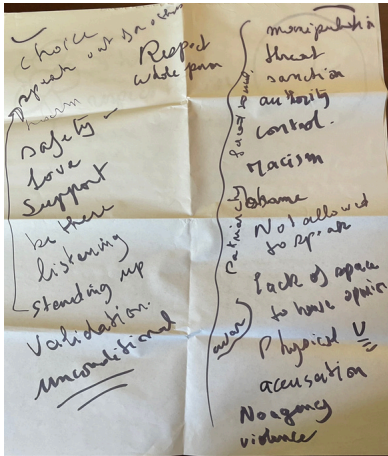 Choice
speak out
Respect
whole person
safety
Love
Support
be there
listening
standing up
Validation.
unconditional
manipulation
threat
sanction
authority
control.
racism
shame
Not allowed
to speak
Lack of space
to have opinion
Physical V
accusation
No agency
violence
Patriarchy